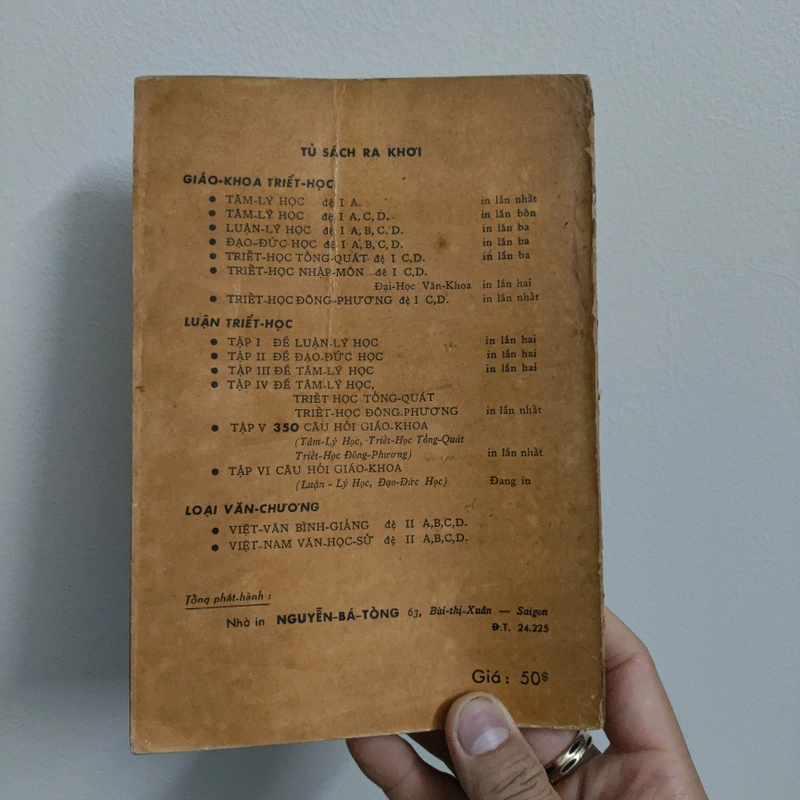 TỦ SÁCH RA KHƠI
GIÁO-KHOA TRIẾT-HỌC
• TÂM-LÝ HỌC đệ I A. in lần nhất
• TÂM-LÝ HỌC đệ I A,C,D. in lần bốn
• LUẬN-LÝ HỌC đệ I A,B,C,D. in lần ba
• ĐẠO-ĐỨC HỌC đệ I A,B,C,D. in lần ba
• TRIẾT-HỌC TỔNG-QUÁT đệ I C,D. in lần ba
• TRIẾT-HỌC NHẬP-MÔN đệ I C,D.
Đại-Học Văn-Khoa in lần hai
• TRIẾT-HỌC ĐÔNG-PHƯƠNG đệ I C,D. in lần nhất
LUẬN TRIẾT-HỌC
• TẬP I ĐỀ LUẬN-LÝ HỌC in lần hai
• TẬP II ĐỀ ĐẠO-ĐỨC HỌC in lần hai
• TẬP III ĐỀ TÂM-LÝ HỌC in lần hai
• TẬP IV ĐỀ TÂM-LÝ HỌC,
TRIẾT HỌC TỔNG-QUÁT
TRIẾT-HỌC ĐÔNG-PHƯƠNG in lần nhất
• TẬP V 350 CÂU HỎI GIÁO-KHOA
(Tâm-Lý Học, Triết-Học Tổng-Quát
Triết-Học Đông-Phương) in lần nhất
• TẬP VI CÂU HỎI GIÁO-KHOA
(Luận - Lý Học, Đạo-Đức Học) Đang in
LOẠI VĂN-CHƯƠNG
• VIỆT-VĂN BÌNH-GIẢNG đệ II A,B,C,D.
• VIỆT-NAM VĂN-HỌC-SỬ đệ II A,B,C,D.
Tổng phát-hành :
Nhà in NGUYỄN-BÁ-TÒNG 63, Bùi-thị-Xuân — Saigon
Đ.T. 24.225
Giá : 50$